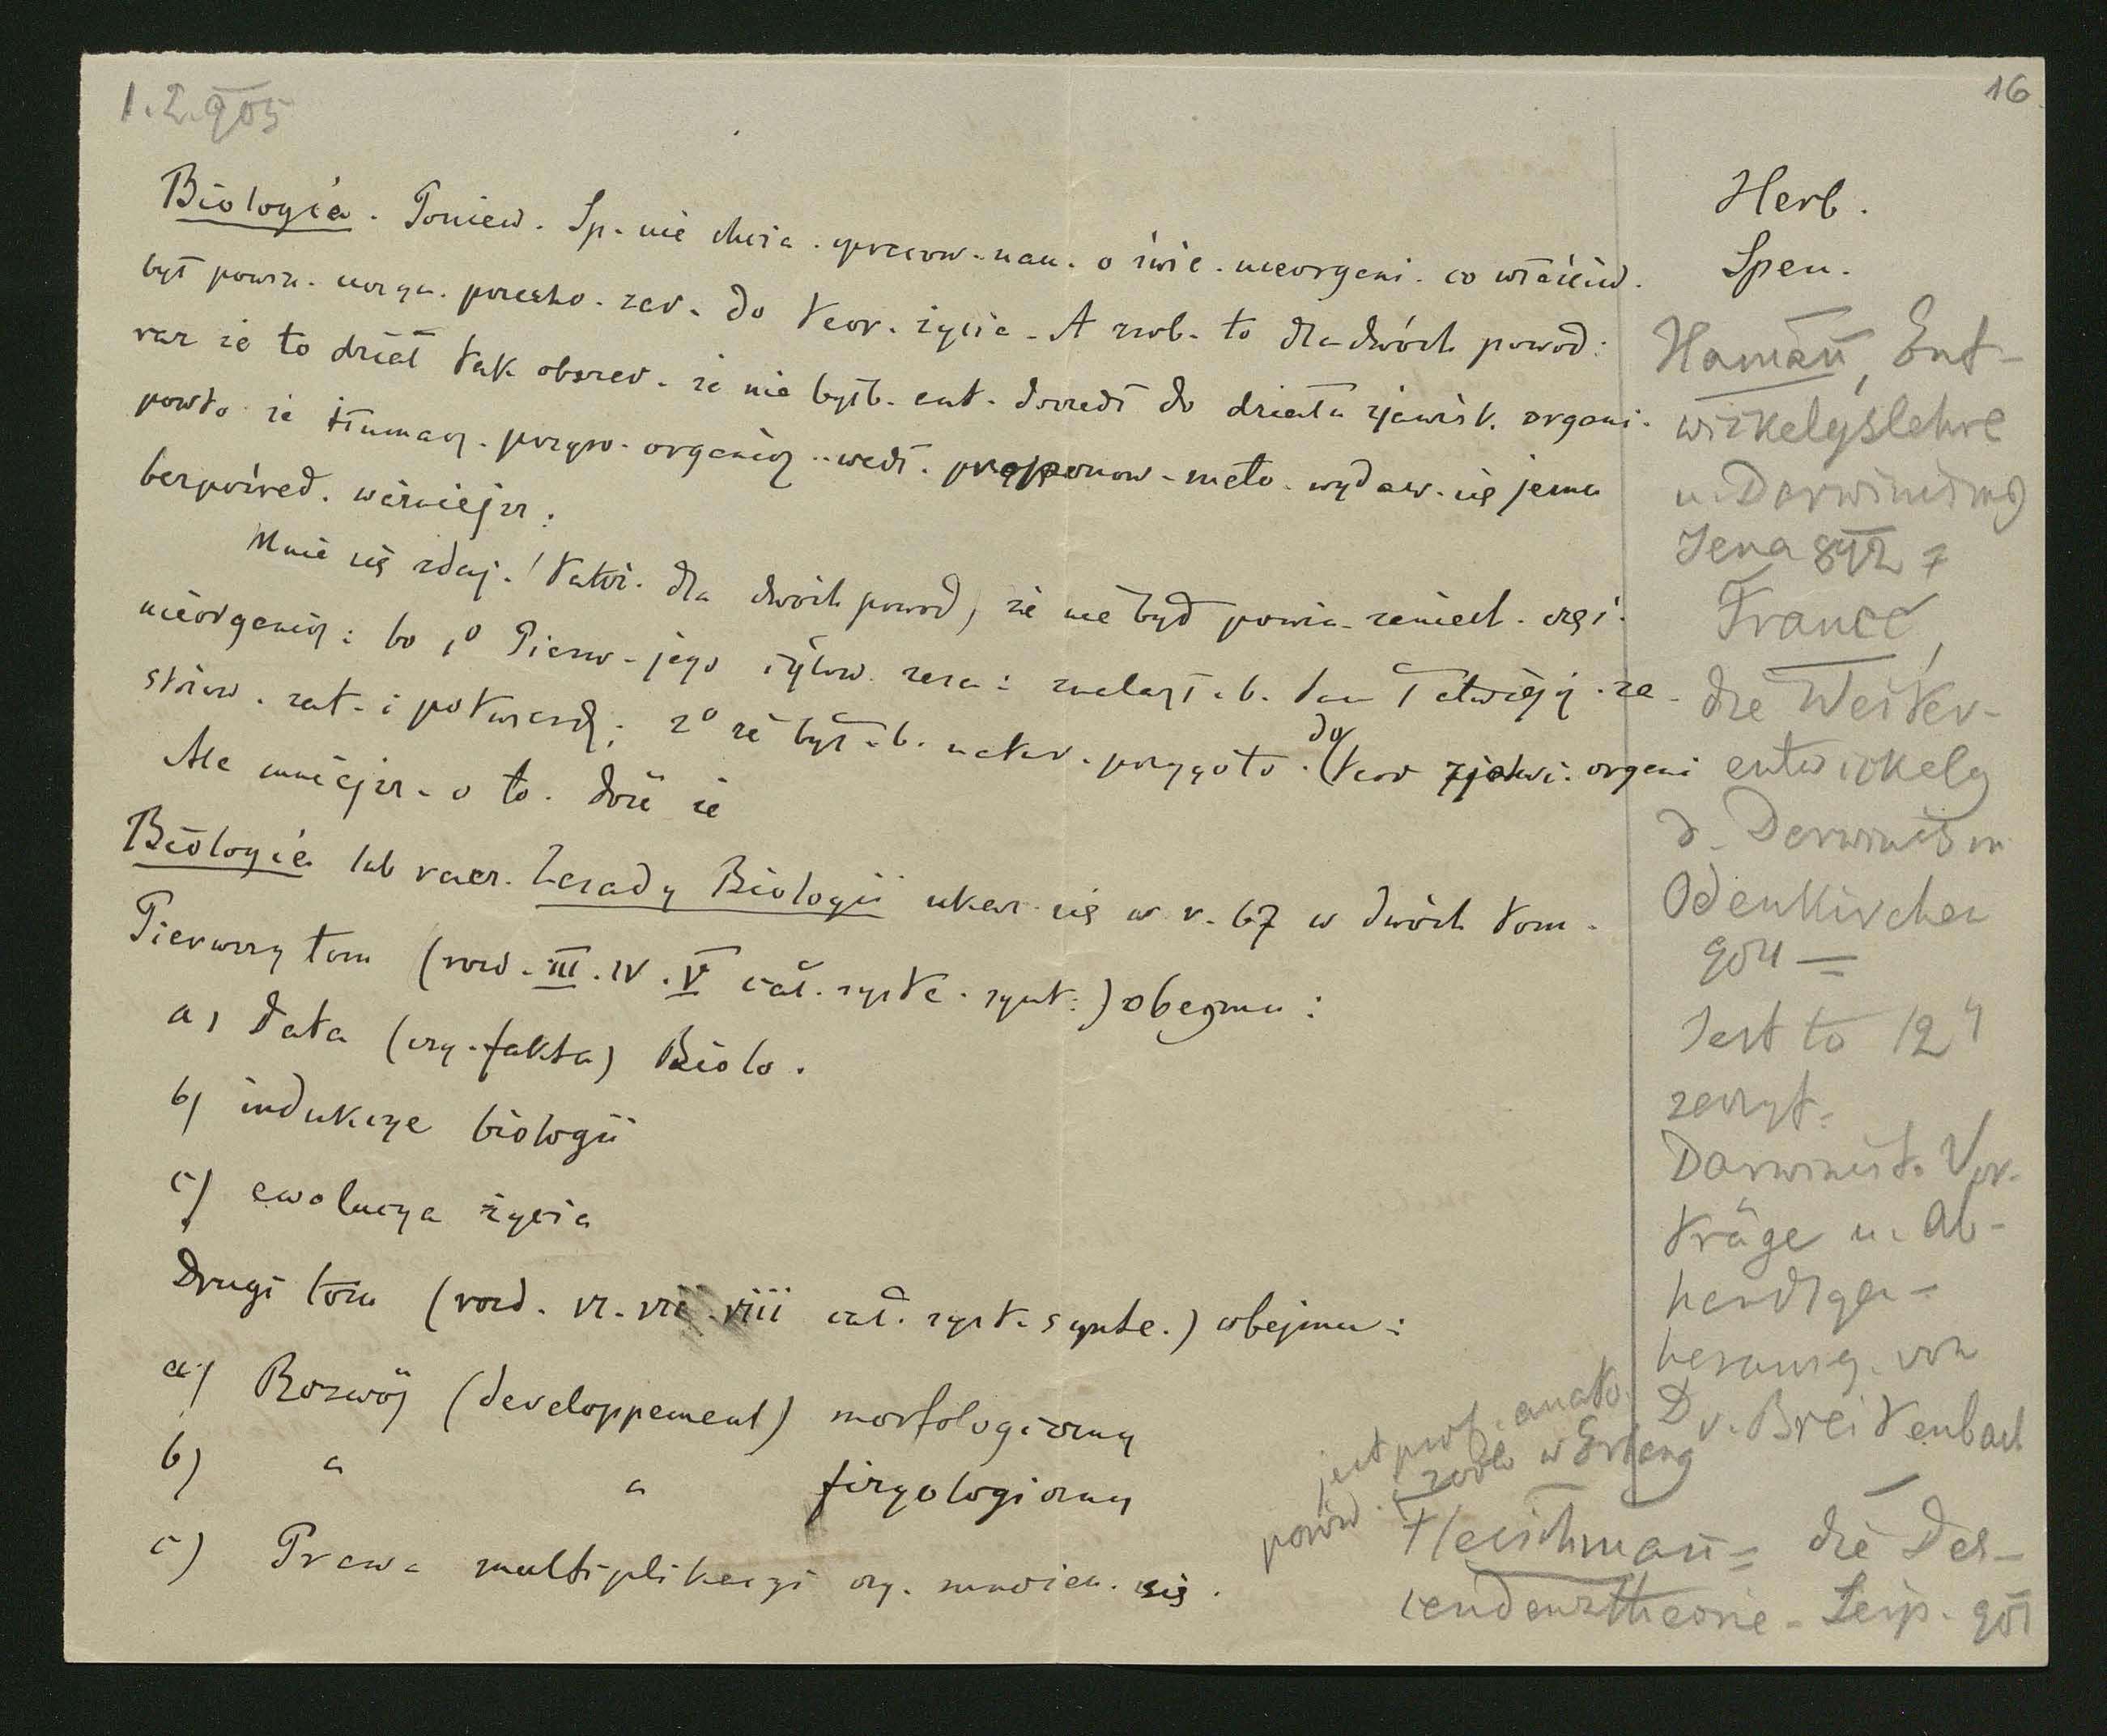 1.2.905
16.
Biologia. Poniew. Sp. nie chcia. opracow. nau. o świe. nieorgani. co właściw.
był powin. uczyn. przecho. zar. do teor. życia. A zrob. to dla dwóch powod:
raz że to dział tak obszer. że nie byłb. aut. doszedł do działu zjawisk. organi.
powtó że tłumacz. przyro. organicz. wedł. proponow. meto. wydaw. się jemu
bezpośred. ważniejsz.
Mnie się zdaj. dla dwóch powod, że nie był powin. zaniech. częś.
nieorganicz: bo 1º Pierw. jego zasa: znalazł.b. tam łatwiej
stosow. zat. i potwierdz; 2º że był.b. natur. przygoto. do teor zjawi. organi
Ale mniejsz. o to. dość że
Biologia lub racz. Zasady Biologii ukaz. się w r. 67 w dwóch tom.
Pierwszy tom (rozd. III. IV. V cał. syste. synt.) obejmu:
a) Data (czy. fakta) Biolo.
b) indukcye biologii
c) ewolucya życia
Drugi tom (rozd. VI. VII. VIII cał. syst. synte.) obejmu:
a) Rozwój (developpement) morfologiczny
b) " " fizyologiczny
c) Prawa multiplikacyi czy. mnożen. się.
Herb.
Spen.
Hamann, Ent-
wickelgslehre
u. Darwinismg
Jena 892
Francé,
die Weiter-
entwickelg
d. Darwinism
Odenkirchen
904 =
Jest to 12 y
zeszyt.
Darwinist. Vor-
träge u. Ab-
handlgen
herausg. von
Dr. Breitenbach
jest prof. anato.
porów. i zoolo w Erlang
Fleischmann = die Des-
cendenztheorie - Leip. 901